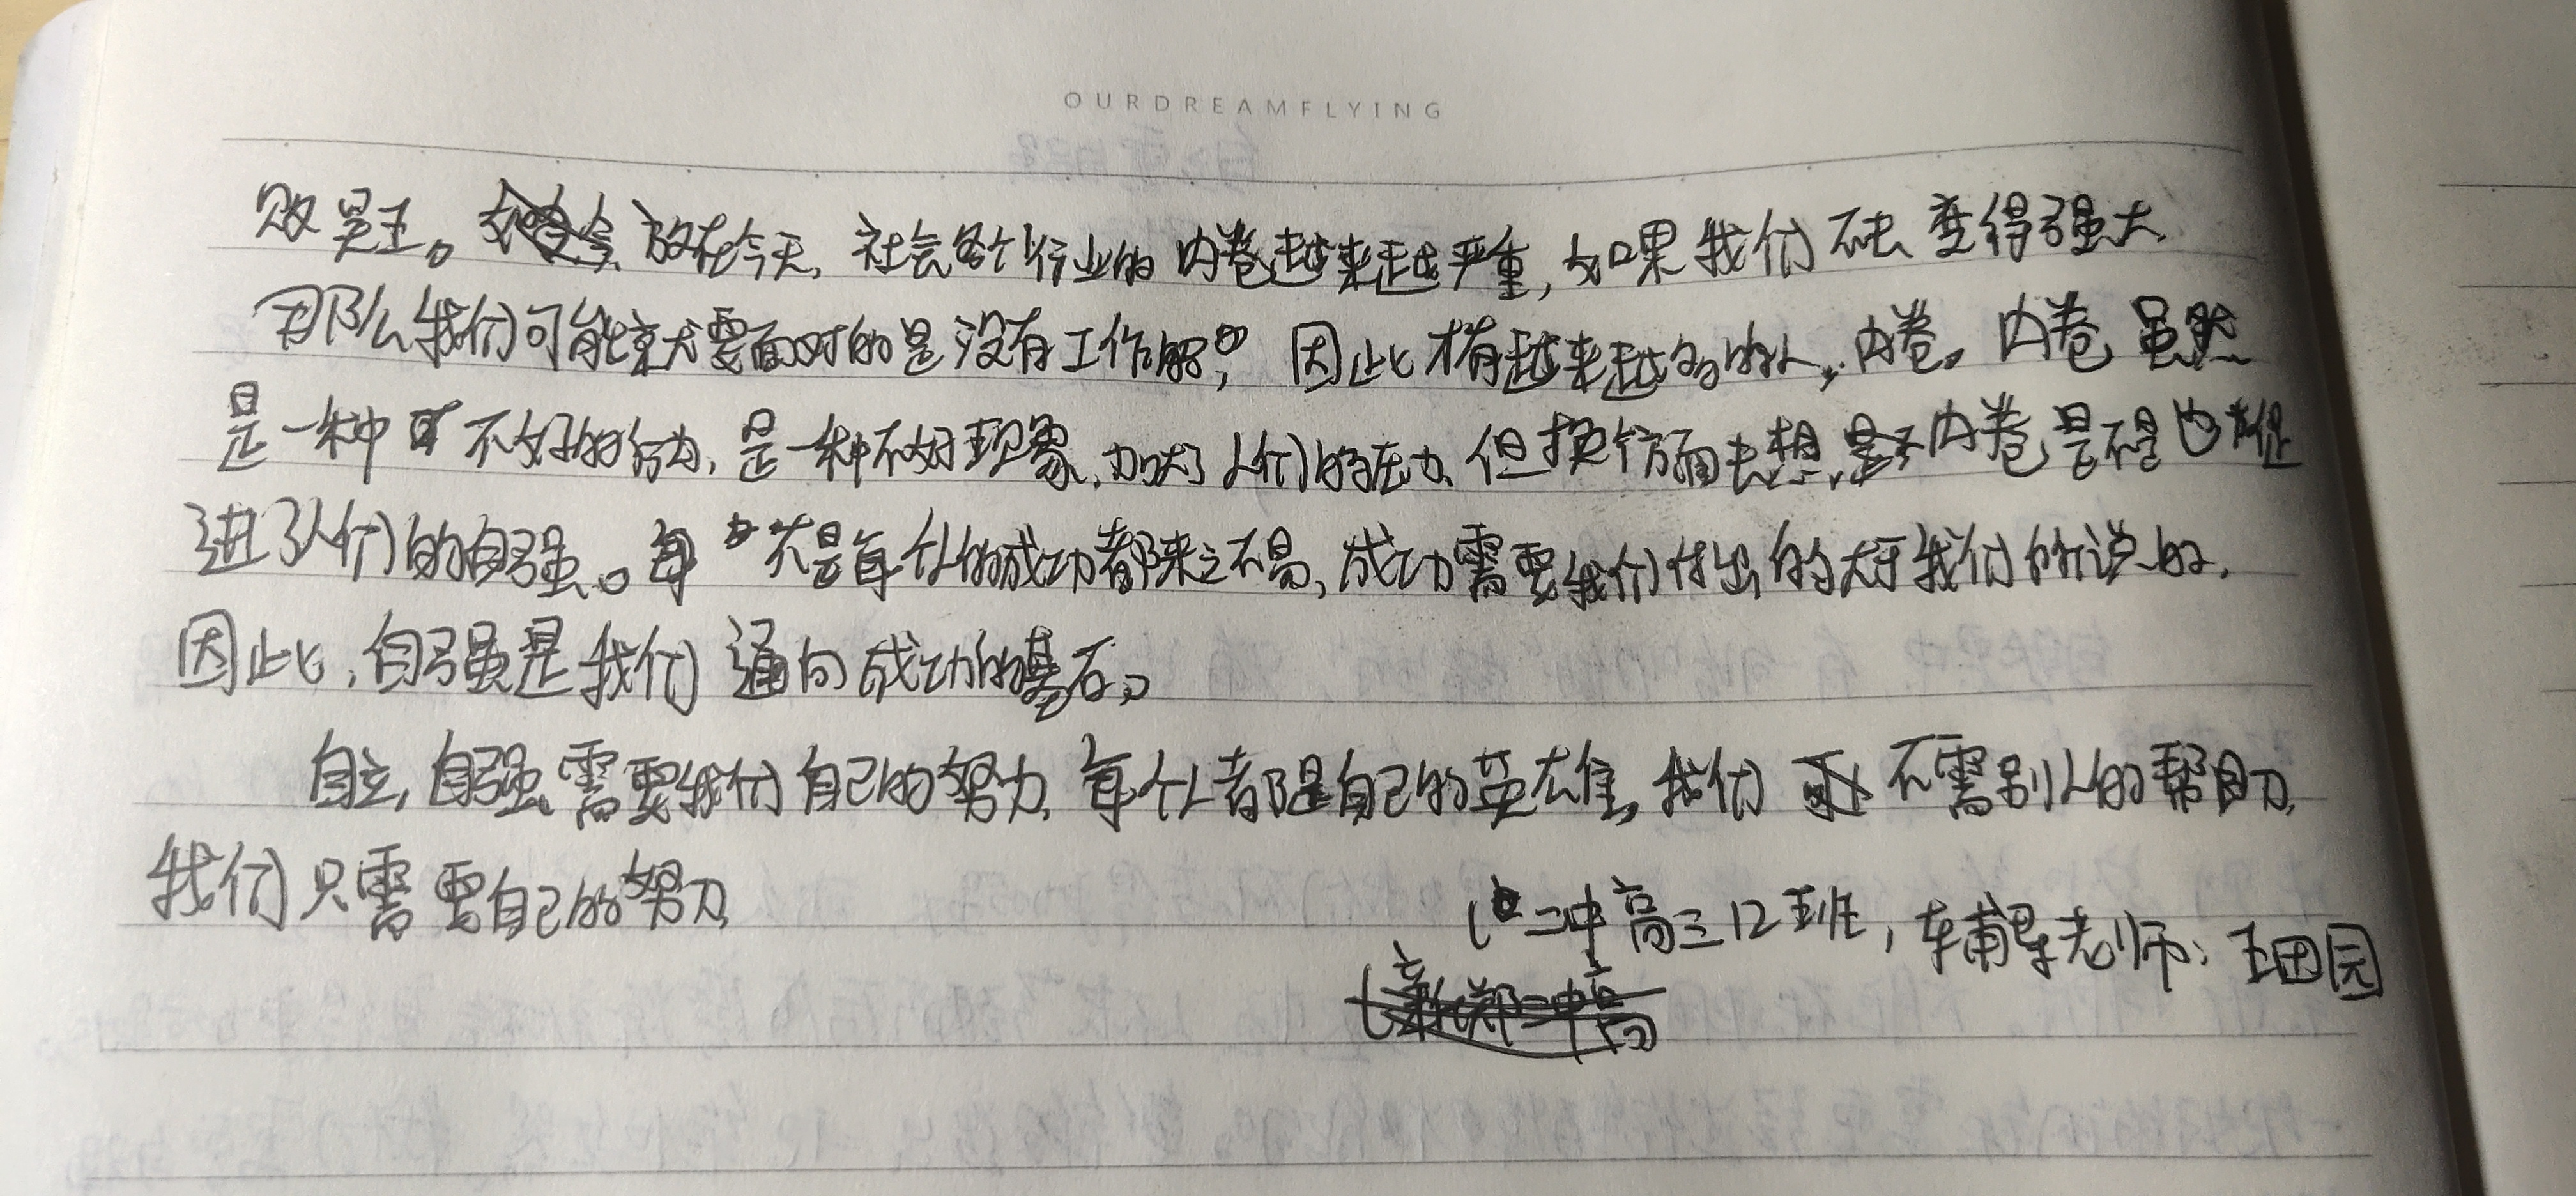 OURDREAMFLYING
败吴王。放在今天，社会各个行业的内卷越来越严重，如果我们不去变得强大
那么我们可能就要面对的是没有工作的，因此才有越来越多的人，内卷。内卷虽然
是一种不好的行为，是一种不好现象，加大了人们的压力，但换个方面去想，内卷是不是也在促
进了人们的自强。不是每个人的成功都来之不易，成功需要我们付出的大于我们所说的，
因此，自强是我们通向成功的基石。
自立，自强需要我们自己的努力，每个人都是自己的英雄，我们不需别人的帮助，
我们只需要自己的努力
二中高三12班，辅导老师：王田园